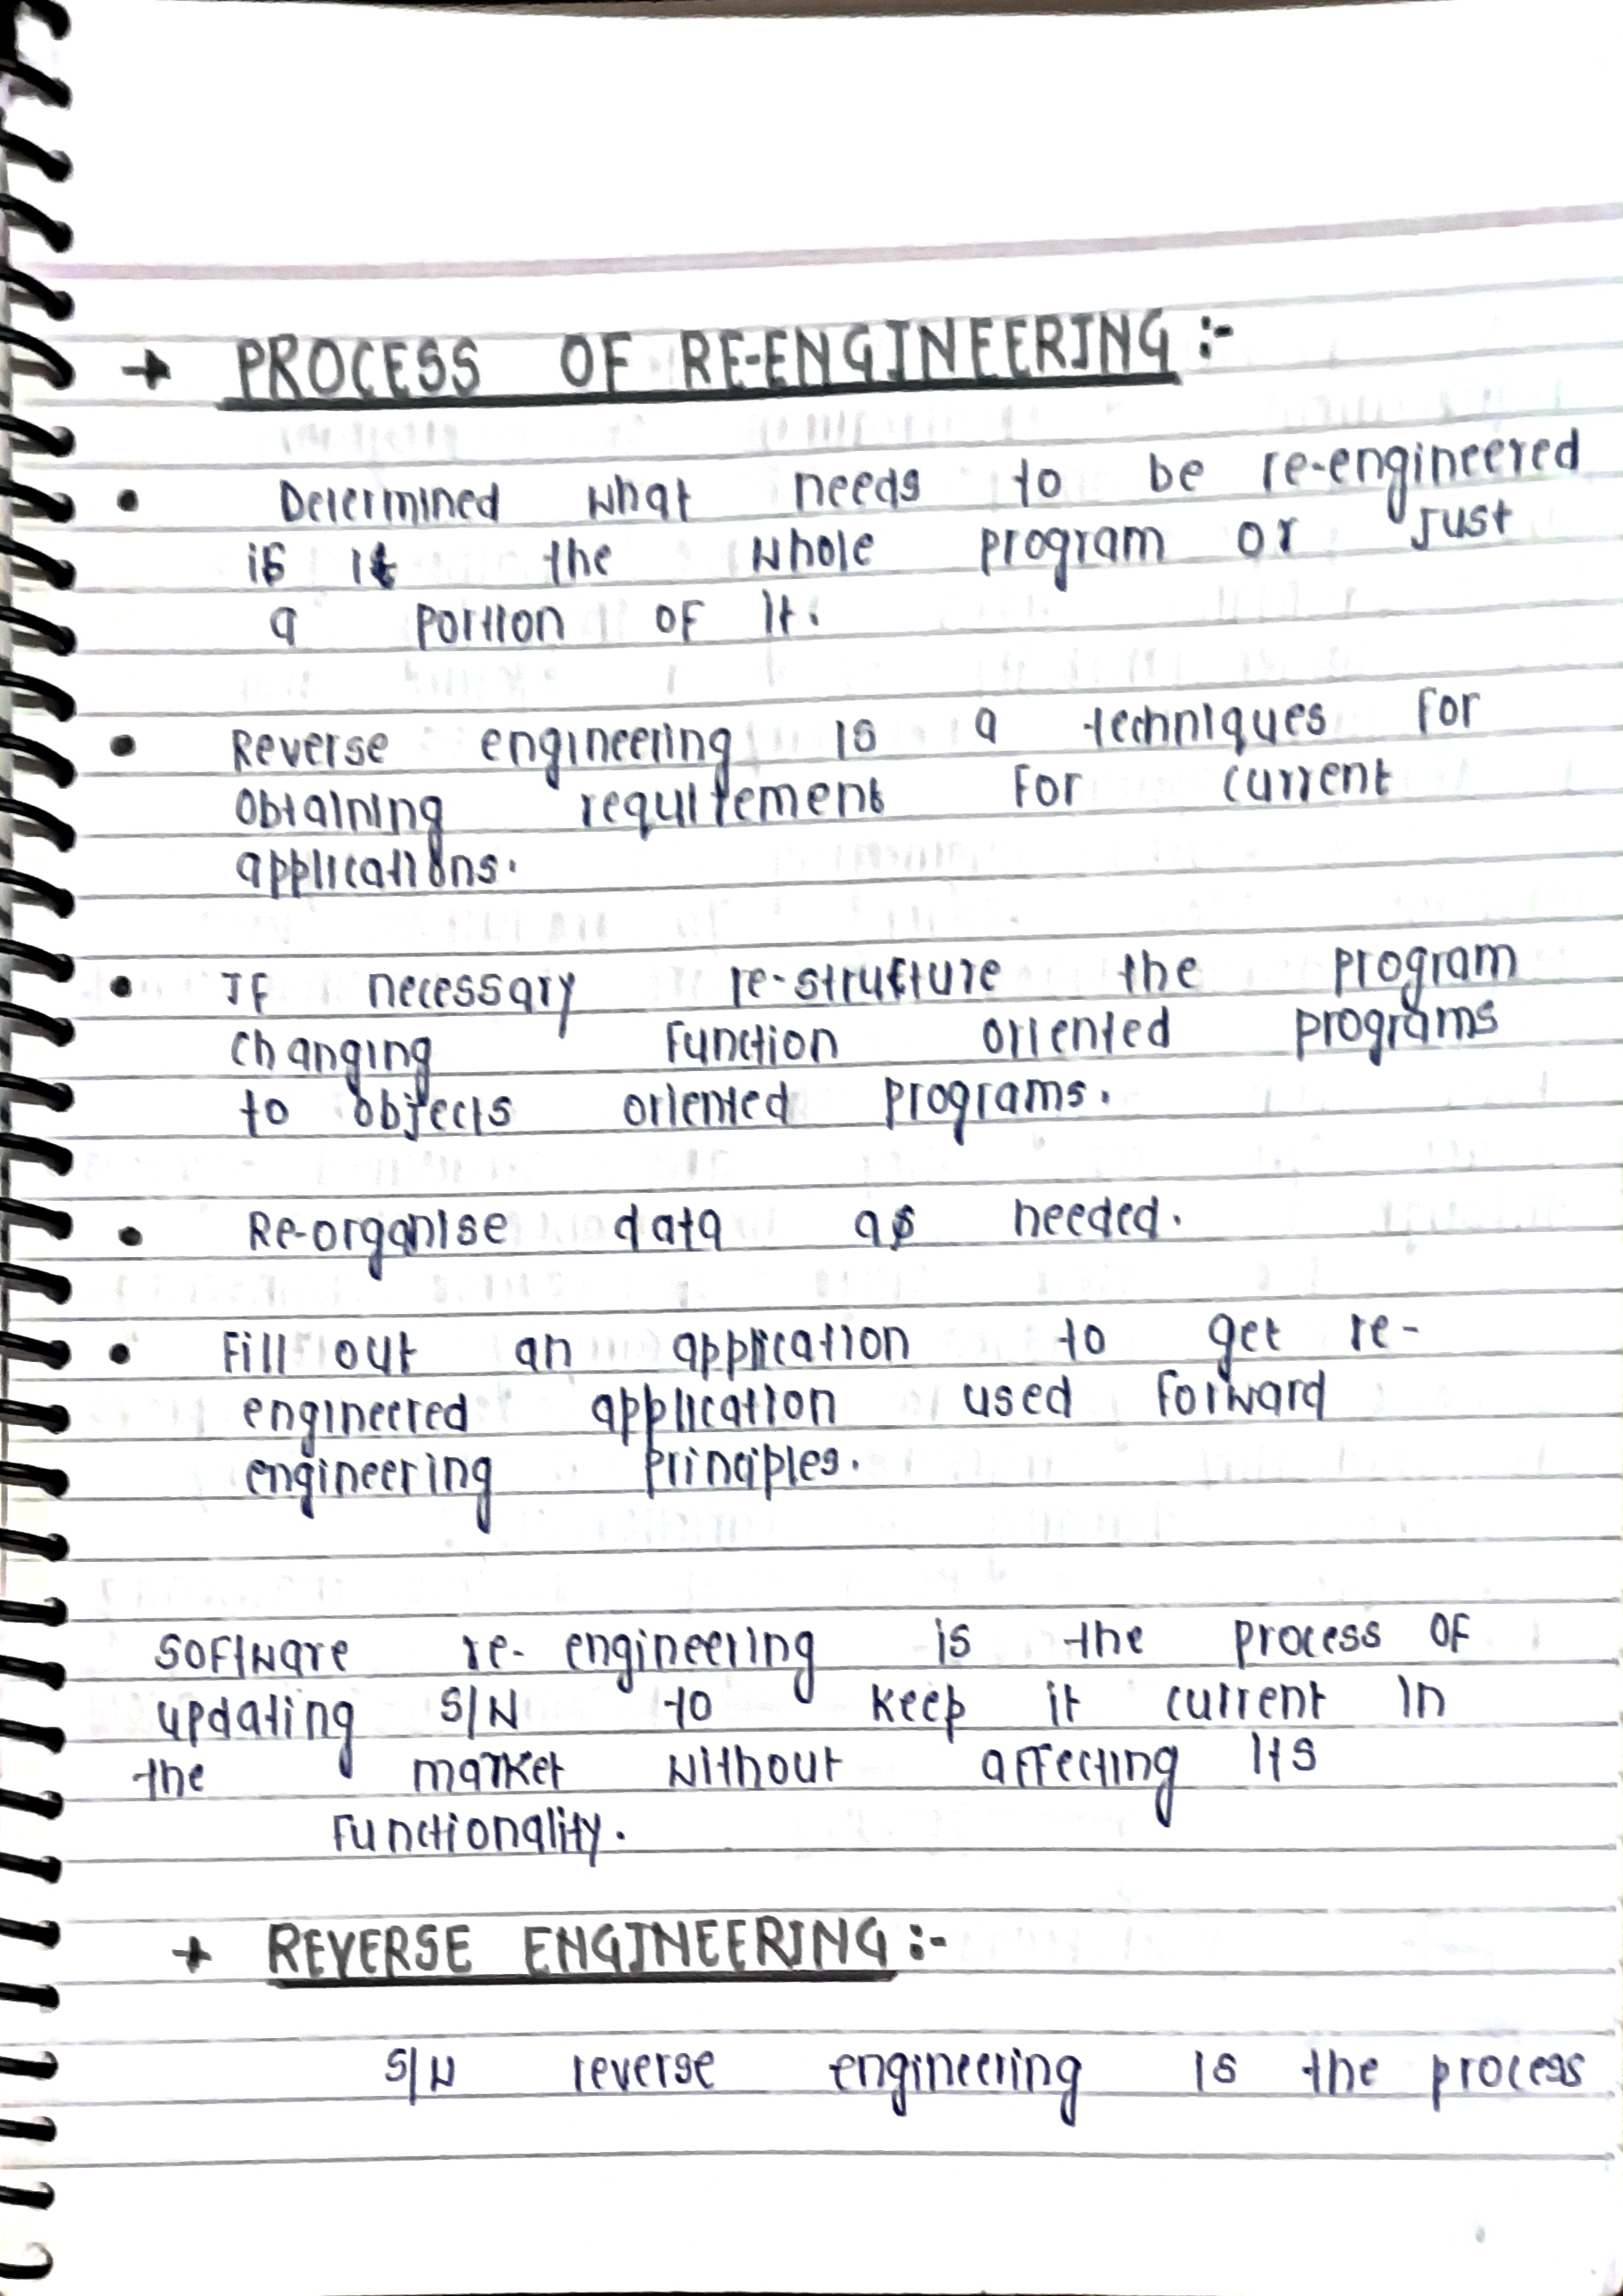 → PROCESS OF RE-ENGINEERING :-
• Determined what needs to be re-engineered
is it the whole program or Just
a portion of it.
• Reverse engineering is a techniques for
obtaining requirement for current
applications.
• If necessary re-structure the program
changing function oriented programs
to objects oriented programs.
• Re-organise data as needed.
• Fill out an application to get re-
engineered application used forward
engineering principles.
Software re-engineering is the process of
updating S/W to keep it current in
the market without affecting its
functionality.
→ REVERSE ENGINEERING :-
S/W reverse engineering is the process